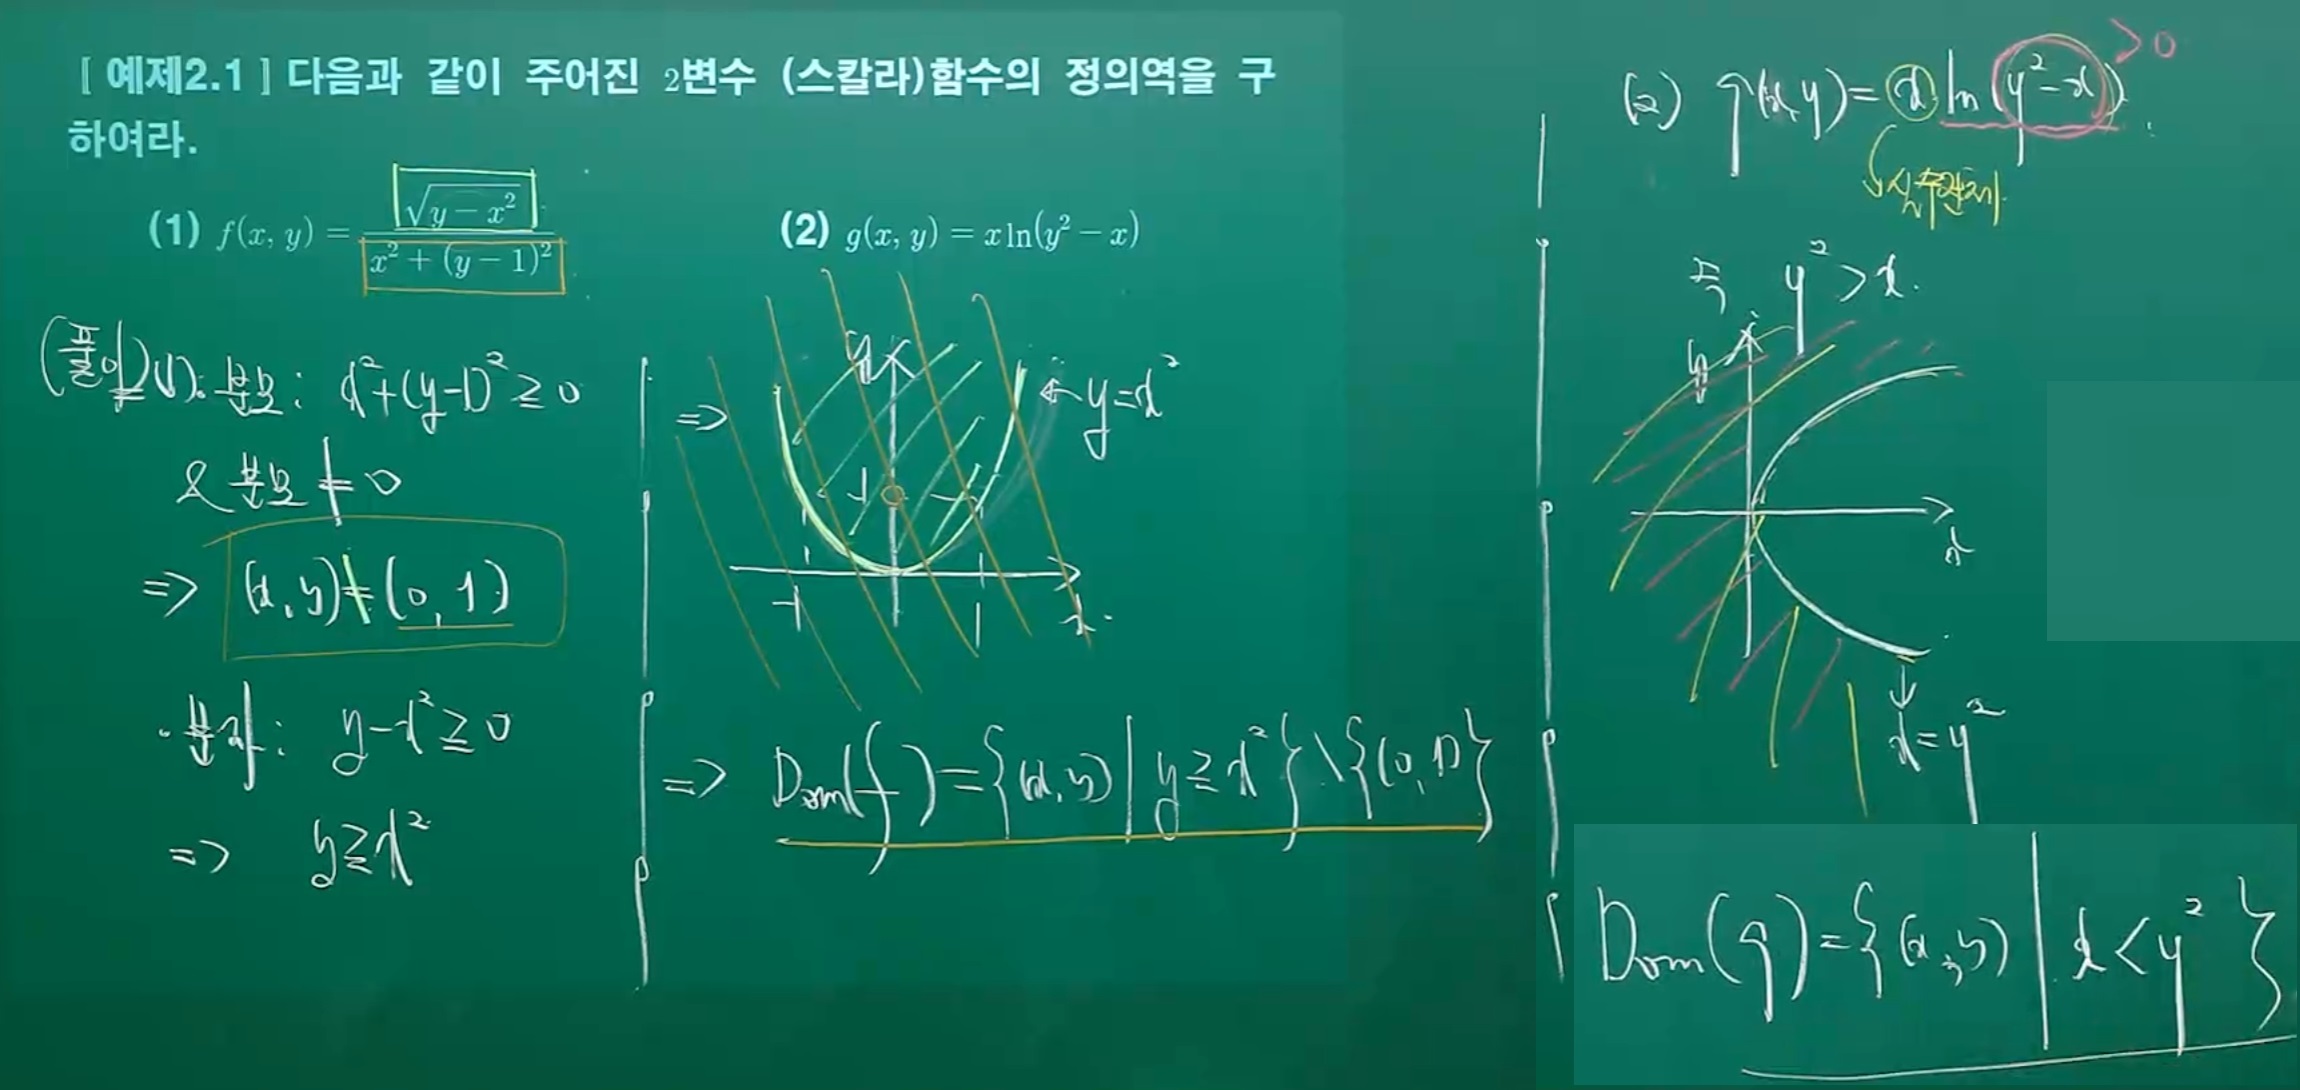 [ 예제2.1 ] 다음과 같이 주어진 2변수 (스칼라)함수의 정의역을 구
하여라.
(1) f(x, y) = √(y − x²) / (x² + (y − 1)²)
(2) g(x, y) = x ln(y² − x)
(풀이) (1). 분모: x²+(y-1)² ≥ 0
& 분모 ≠ 0
=> (x, y) ≠ (0, 1)
· 분자: y-x² ≥ 0
=> y ≥ x²
=>
y
y=x²
1
-1
1
x.
=> Dom(f) = {(x, y) | y ≥ x²} \ {(0, 1)}
(2) g(x, y) = x ln(y²-x) > 0
실수전체
즉 y² > x.
y
x
x=y²
Dom(g) = {(x, y) | x < y²}